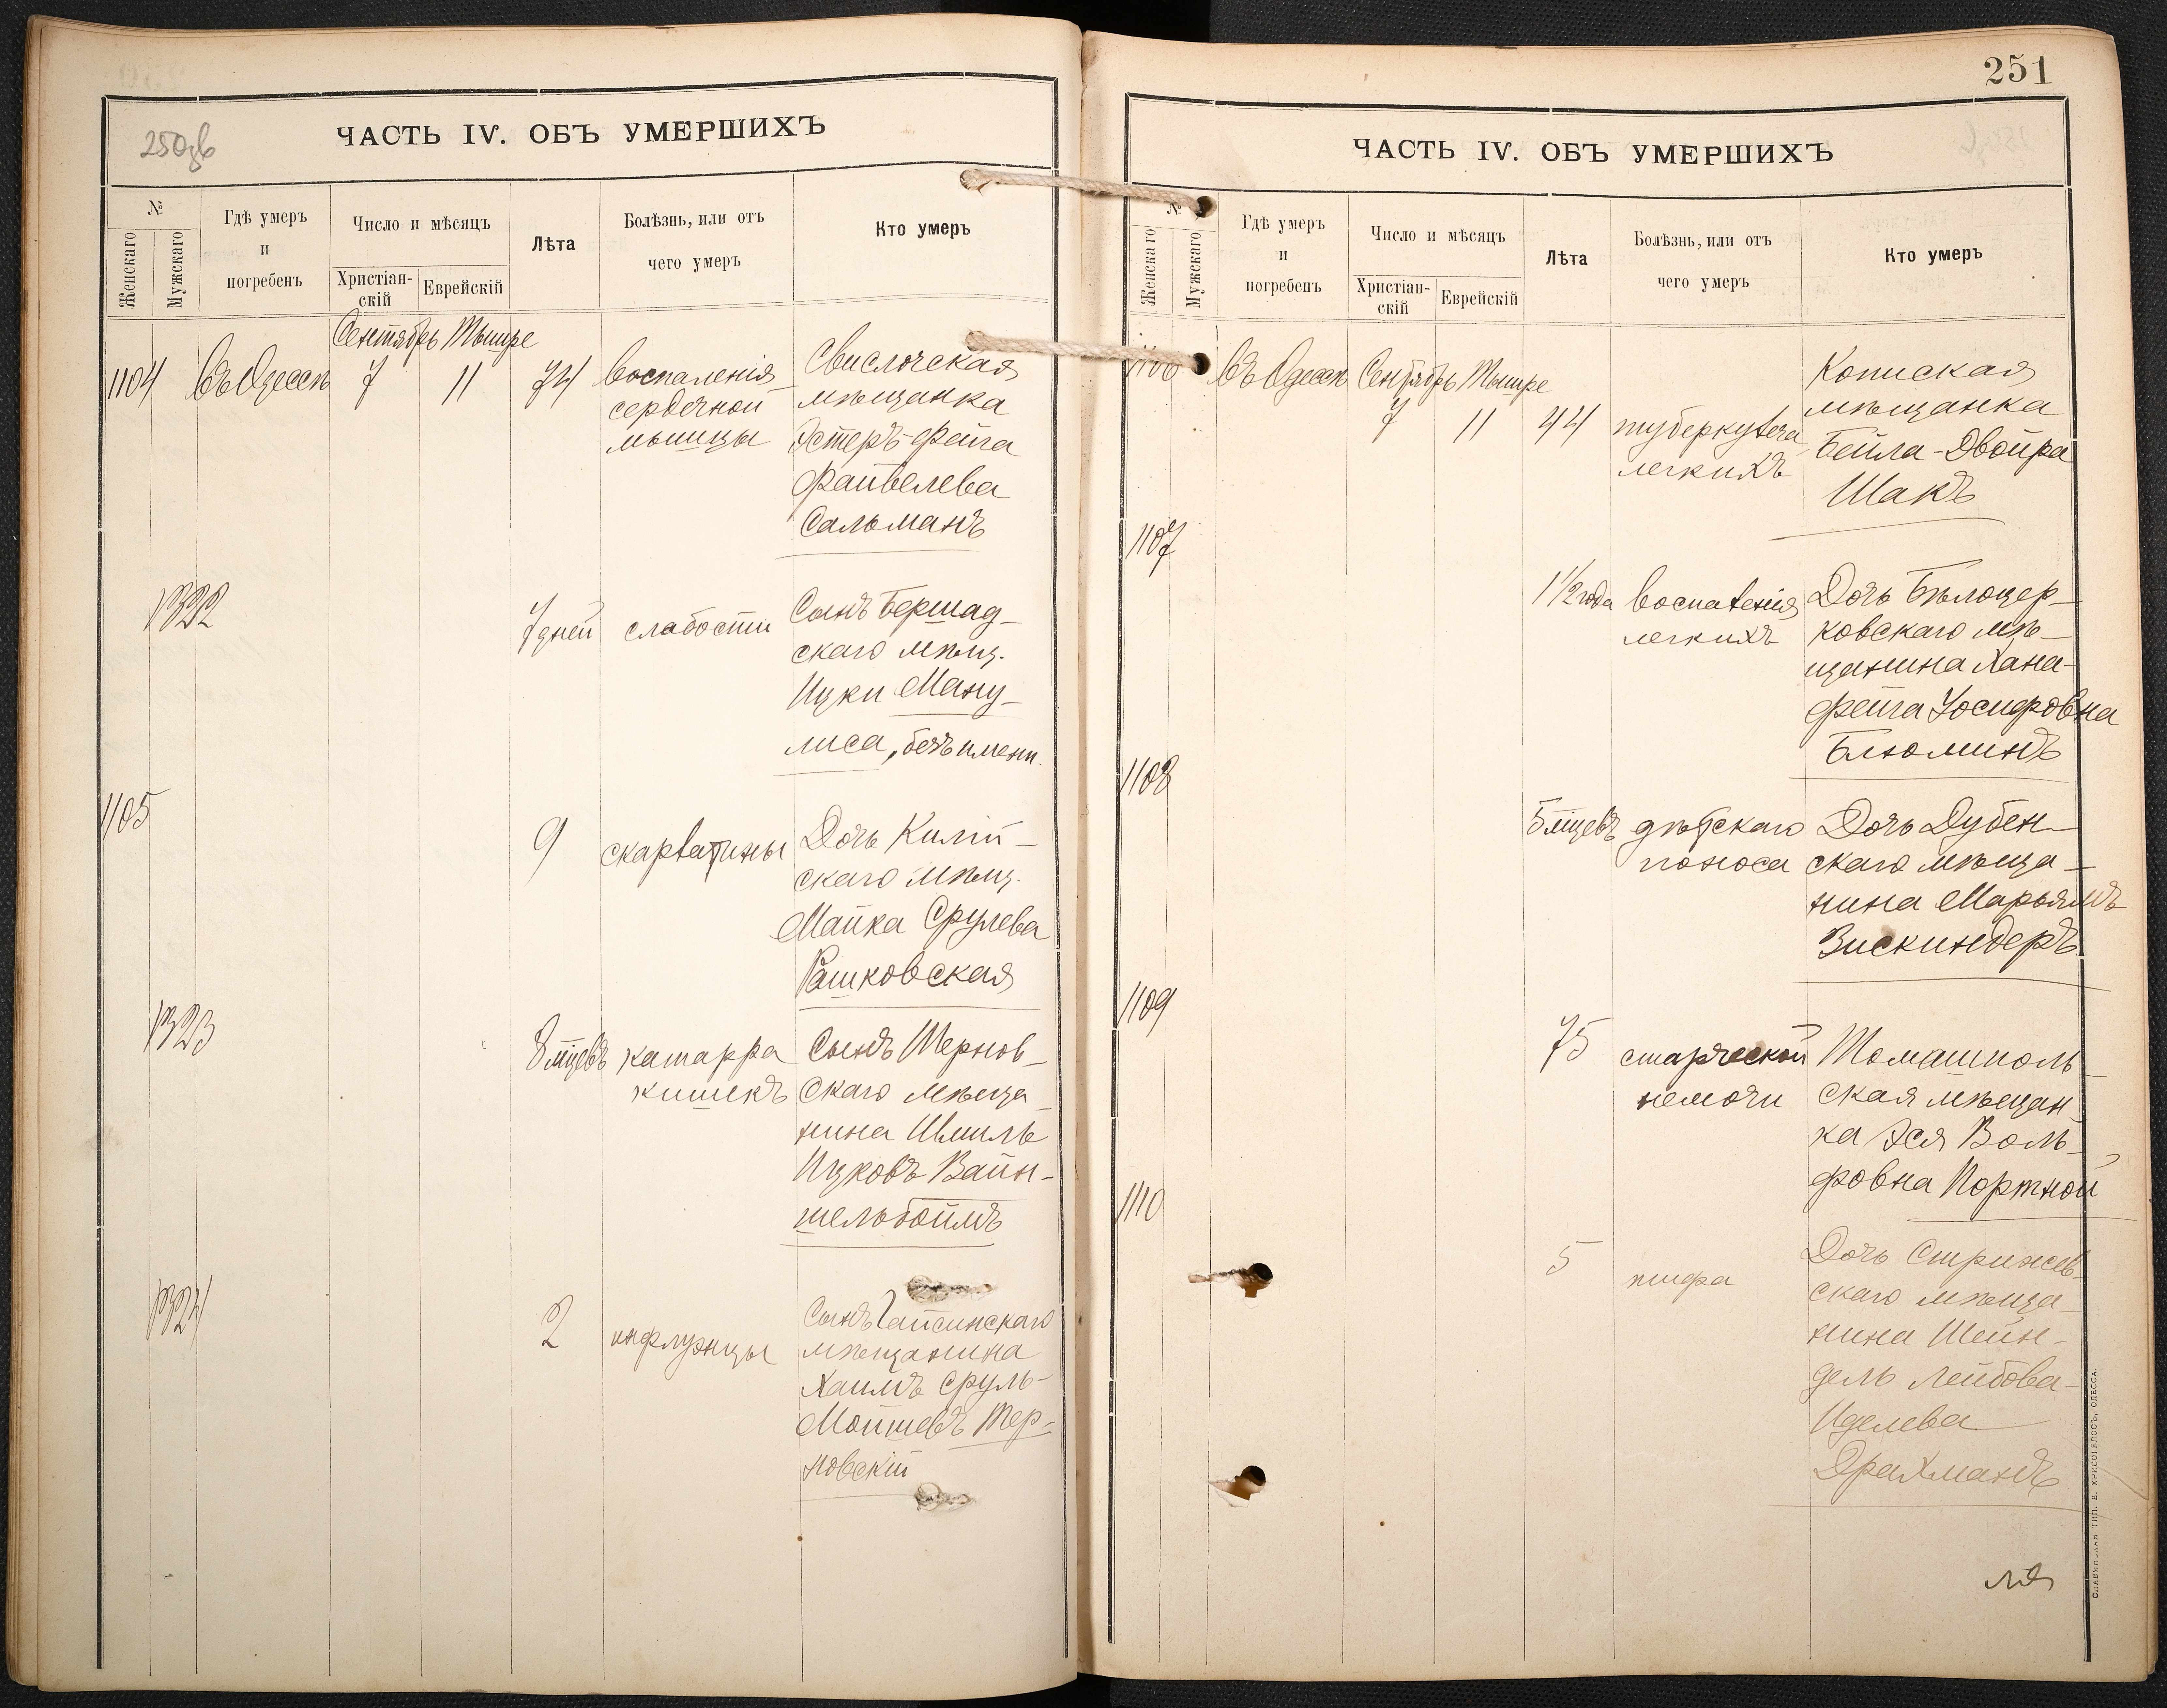 250зв
ЧАСТЬ IV. ОБЪ УМЕРШИХЪ
№
Женскаго
Мужскаго
Гдѣ умеръ
и
погребенъ
Число и мѣсяцъ
Христіан-
скій
Еврейскій
Лѣта
Болѣзнь, или отъ
чего умеръ
Кто умеръ
Сентябрь Тышре
1104 Въ Одессѣ 7 11 74
воспаленія
сердечной
мышцы
Свислочская
мѣщанка
Эстеръ-Фейга
Файвелева
Сальманъ
1322
7 дней слабости
Сынъ Бершад-
скаго мѣщ.
Ицки Ману-
лиса, безъ имени.
1105
9 скарлатины
Дочь Килій-
скаго мѣщ.
Майка Срулева
Рашковская
1323
8 мцевъ катарра
кишекъ
Сынъ Чернов-
скаго мѣща-
нина Шмиль
Ицковъ Вайн-
шельбоймъ
1324
2 инфлуэнцы
Сынъ Гайсинскаго
мѣщанина
Хаимъ Сруль-
Мошевъ Тер-
новскій
251
ЧАСТЬ IV. ОБЪ УМЕРШИХЪ
№
Женскаго
Мужскаго
Гдѣ умеръ
и
погребенъ
Число и мѣсяцъ
Христіан-
скій
Еврейскій
Лѣта
Болѣзнь, или отъ
чего умеръ
Кто умеръ
1106 Въ Одессѣ Сентябрь Тышре
7 11 44
туберкулеза
легкихъ
Кописская
мѣщанка
Бейла-Двойра
Шакъ
1107
1 1/2 года воспаленія
легкихъ
Дочь Бѣлоцер-
ковскаго мѣ-
щанина Хана-
Фейга Іосифовна
Блюминъ
1108
5 мцевъ дѣтскаго
поноса
Дочь Дубен-
скаго мѣща-
нина Марьямъ
Зискиндеръ
1109
75 старческой
немочи
Томашполь-
ская мѣщан-
ка Эся Воль-
фовна Портной
1110
5 тифа
Дочь Стрижев-
скаго мѣща-
нина Шейн-
дель Лейбова-
Иделева
Драхманъ
СЛАВЯНСКАЯ ТИП. Е. ХРИСОГЕЛОСЪ, ОДЕССА.